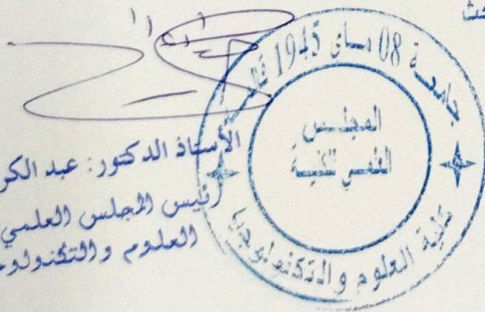 جامعة 08 ماي 1945
المجلس
العلمي للكلية
كلية العلوم والتكنولوجيا
الأستاذ الدكتور: عبد الكر
رئيس المجلس العلمي
العلوم والتكنولوج